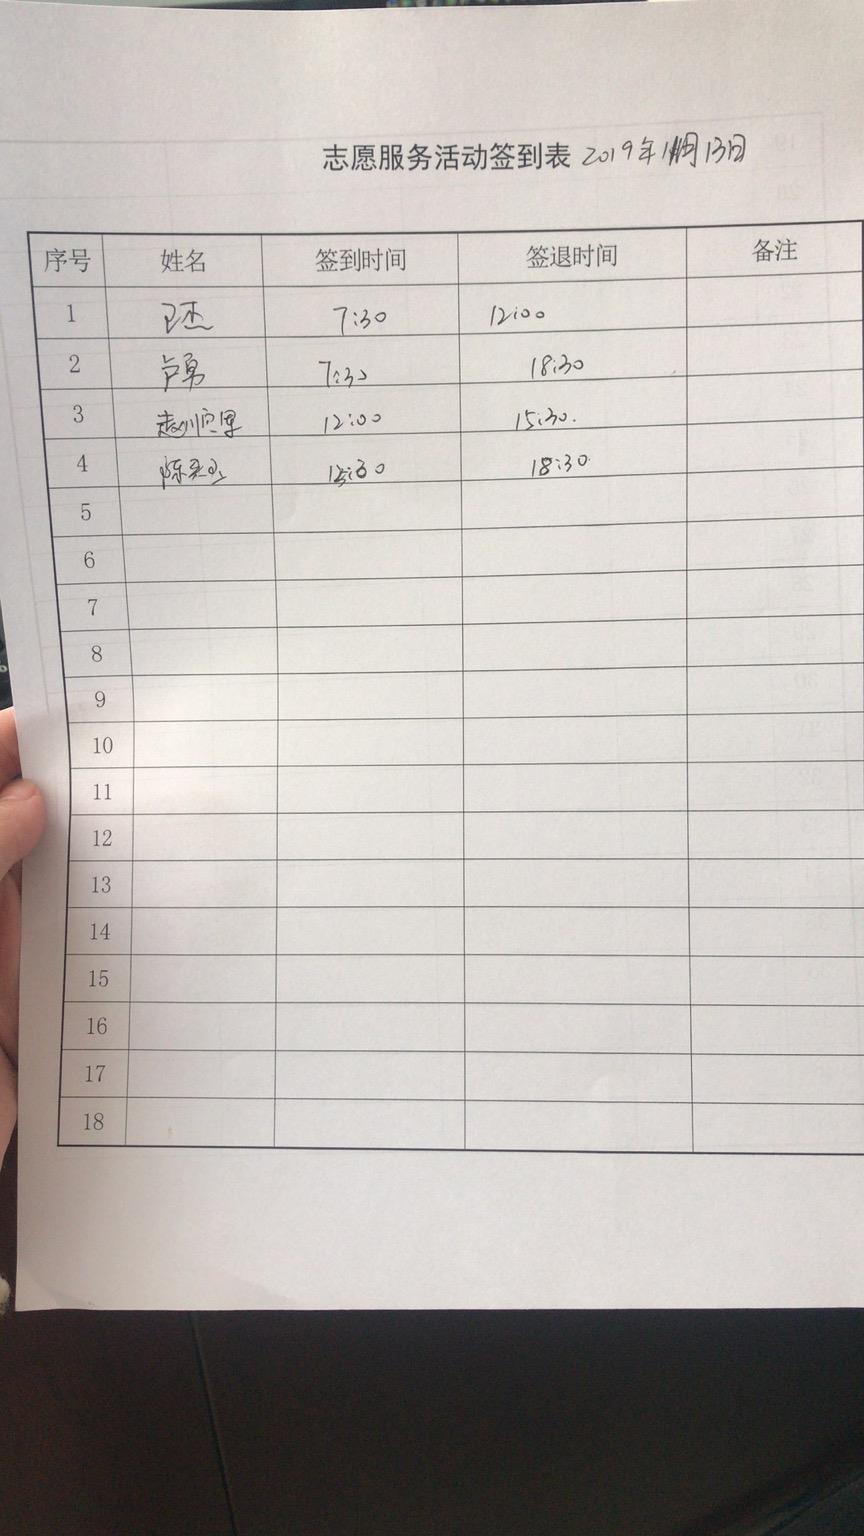 志愿服务活动签到表 2019年11月13日
序号 姓名 签到时间 签退时间 备注
1 卫杰 7:30 12:00
2 卢勇 7:30 18:30
3 12:00 15:30.
4 15:30 18:30
5
6
7
8
9
10
11
12
13
14
15
16
17
18